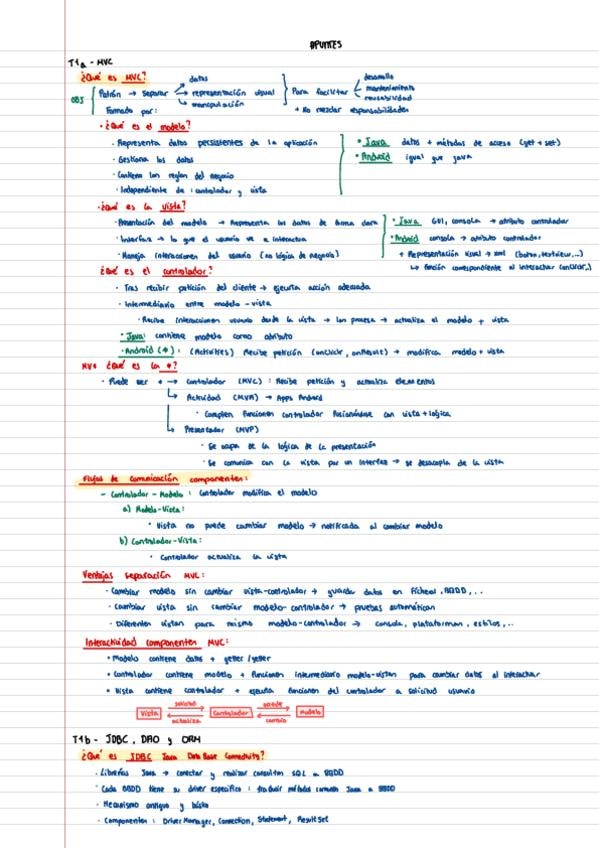 APUNTES
T1a - MVC
¿Qué es MVC?
OBJ Patrón → separar → datos → representación visual → manipulación Para facilitar → desarrollo → mantenimiento → reusabilidad
Formado por: + No mezclar responsabilidades
· ¿Qué es el modelo?
· Representa datos persistentes de la aplicación • Java datos + métodos de acceso (get + set)
· Gestiona los datos • Android igual que java
· Contiene las reglas del negocio
· Independiente de controlador y vista
· ¿Qué es la vista?
· Presentación del modelo → Representa los datos de forma clara • Java GUI, consola → atributo controlador
· Interfaz → lo que el usuario ve e interactua • Android consola → atributo controlador
· Maneja interacciones del usuario (no lógica de negocio) + Representación visual → xml (boton, textview,...)
↳ función correspondiente al interactuar (onClick...)
¿Qué es el controlador?
· Tras recibir petición del cliente → ejecuta acción adecuada
· Intermediario entre modelo - vista
· Recibe interacciones usuario desde la vista → las procesa → actualiza el modelo + vista
• Java: contiene modelo como atributo
• Android (*): (Activities) Recibe petición (onClick, onResult) → modifica modelo + vista
MV* ¿Qué es la *?
· Puede ser * → Controlador (MVC): Recibe petición y actualiza elementos
↳ Actividad (MVA) → Apps Android
· Cumplen funciones controlador fusionándose con vista + lógica
↳ Presentador (MVP)
· Se ocupa de la lógica de la presentación
· Se comunica con la vista por un interfaz → se desacopla de la vista
Flujos de comunicación componentes:
- Controlador - Modelo: Controlador modifica el modelo
a) Modelo-Vista:
· Vista no puede cambiar modelo → notificada al cambiar modelo
b) Controlador-Vista:
· Controlador actualiza la vista
Ventajas separación MVC:
· Cambiar modelo sin cambiar vista-controlador → guardar datos en fichero, BBDD,...
· Cambiar vista sin cambiar modelo-controlador → pruebas automáticas
· Diferentes vistas para mismo modelo-controlador → consola, plataformas, estilos,...
Interactividad componentes MVC:
• Modelo contiene datos + getter/setter
• Controlador contiene modelo + funciones intermediario modelo-vistas para cambiar datos al interactuar
• Vista contiene controlador + ejecuta funciones del controlador a solicitud usuario
Vista solicitud actualiza Controlador accede cambia Modelo
T1b - JDBC, DAO y ORM
¿Qué es JDBC Java Data Base Connectivity?
· Librerías Java → conectar y realizar consultas SQL a BBDD
· Cada BBDD tiene su driver específico: traducir métodos comunes Java a BBDD
· Mecanismo antiguo y básico
· Componentes: DriverManager, Connection, Statement, ResultSet